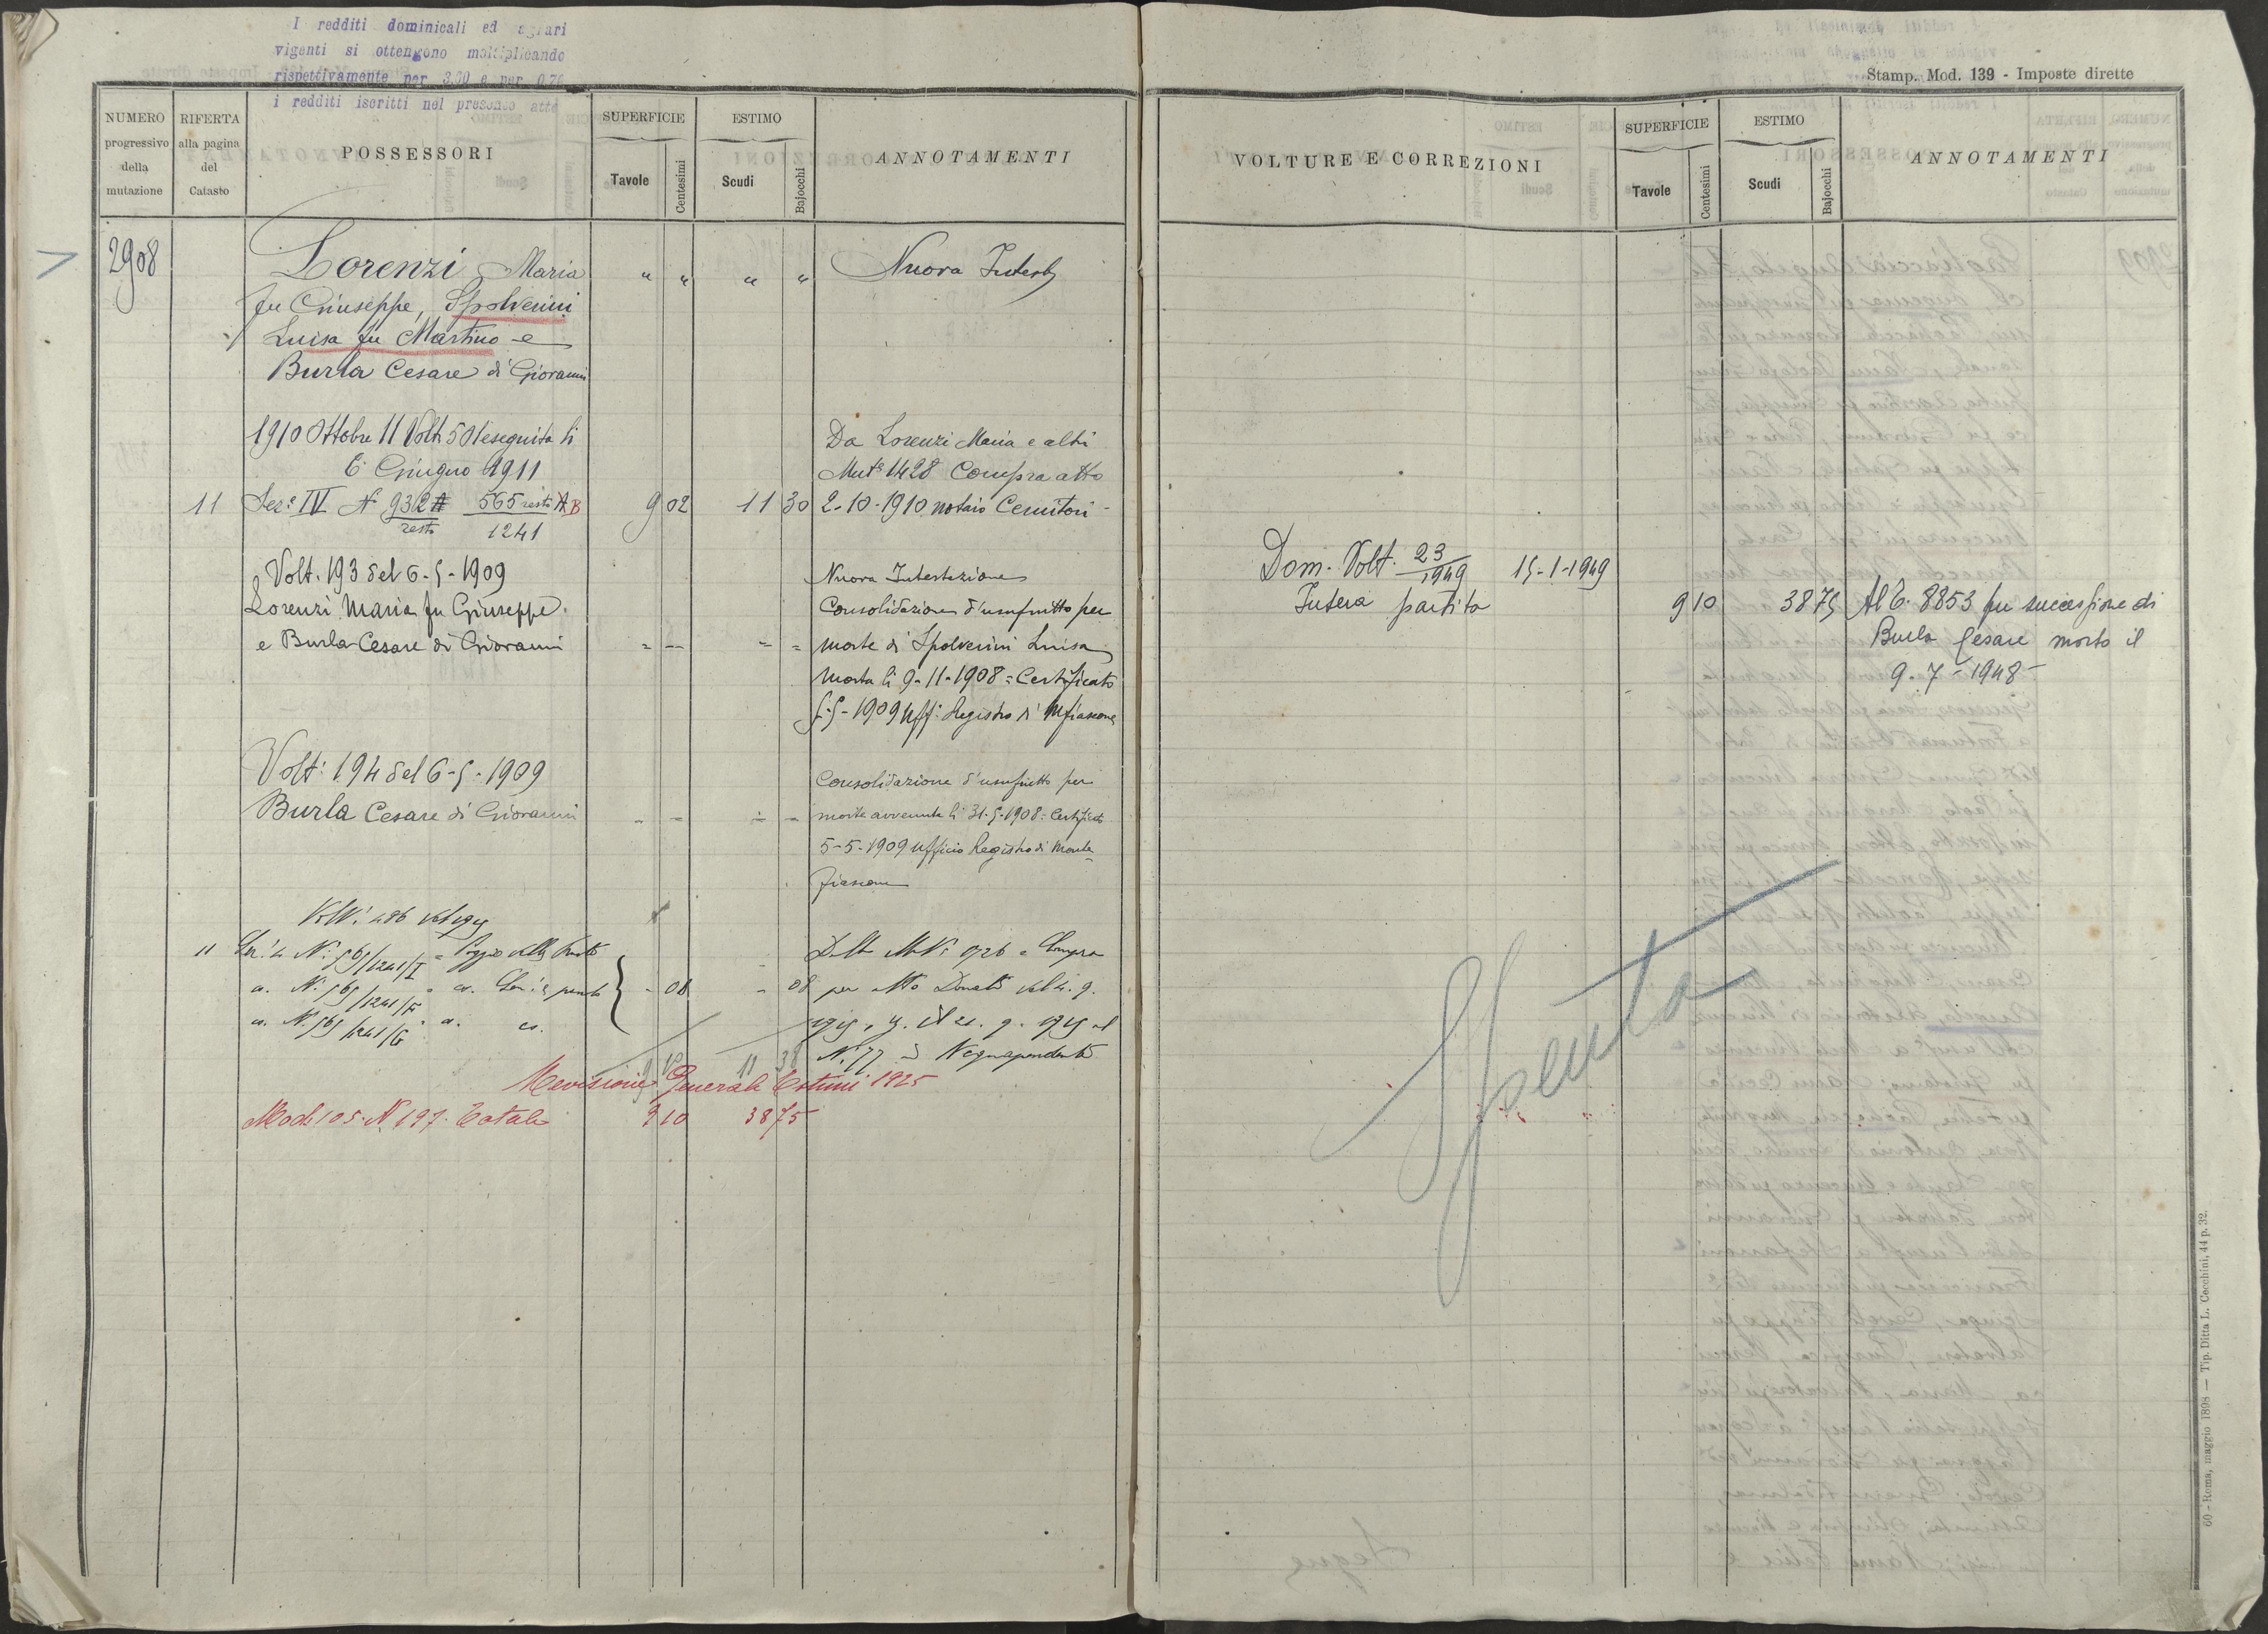 I redditi dominicali ed agrari
vigenti si ottengono moltiplicando
rispettivamente per 3,00 e per 0,70
i redditi iscritti nel presente atto
NUMERO progressivo della mutazione
RIFERTA alla pagina del Catasto
POSSESSORI
SUPERFICIE
Tavole
Centesimi
ESTIMO
Scudi
Bajocchi
ANNOTAMENTI
2908
Lorenzi Maria " " " " Nuova Intest
fu Giuseppe, Spolverini
Luisa fu Martino e
Burla Cesare di Giovanni
1910 Ottobre 11 Volt 501 eseguita li
6 Giugno 1911
Da Lorenzi Maria e altri
Mut 1428 Compra atto
11 Sez. IV N 932 A resto 565 resto A B 1241 9 02 11 30 2-10-1910 notaio
Volt. 193 del 6-5-1909
Lorenzi Maria fu Giuseppe
e Burla Cesare di Giovanni
Nuova Intestazione
Consolidazione d'usufrutto per
morte di Spolverini Luisa
morta li 9-11-1908 = Certificato
5-5-1909 Uff. Registro di Mfiascone
Volt. 194 del 6-5-1909
Burla Cesare di Giovanni
Consolidazione d'usufrutto per
morte avvenuta li 31-5-1908 = Certificato
5-5-1909 Ufficio Registro di Monte
fiascone
Volt. 486
11 Sez. 4 N. 565/1241/I = Poggio
N. 565/1241/F
N. 565/1241/G
- 08 - 08
Compra
per atto Donati del 4. 9.
N. 77
9 10 11 38
Revisione Generale Estimi 1925
Mod 105 N 197 Totale 9 10 38 75
Stamp. Mod. 139 - Imposte dirette
VOLTURE E CORREZIONI
SUPERFICIE
Tavole
Centesimi
ESTIMO
Scudi
Bajocchi
ANNOTAMENTI
Dom. Volt. 23/1949 15-1-1949
Intera partita 9 10 38 75 Al 8853 per successione di
Burla Cesare morto il
9-7-1948
Spenta
60 - Roma, maggio 1898 — Tip. Ditta L. Cecchini, 44 p. 32.